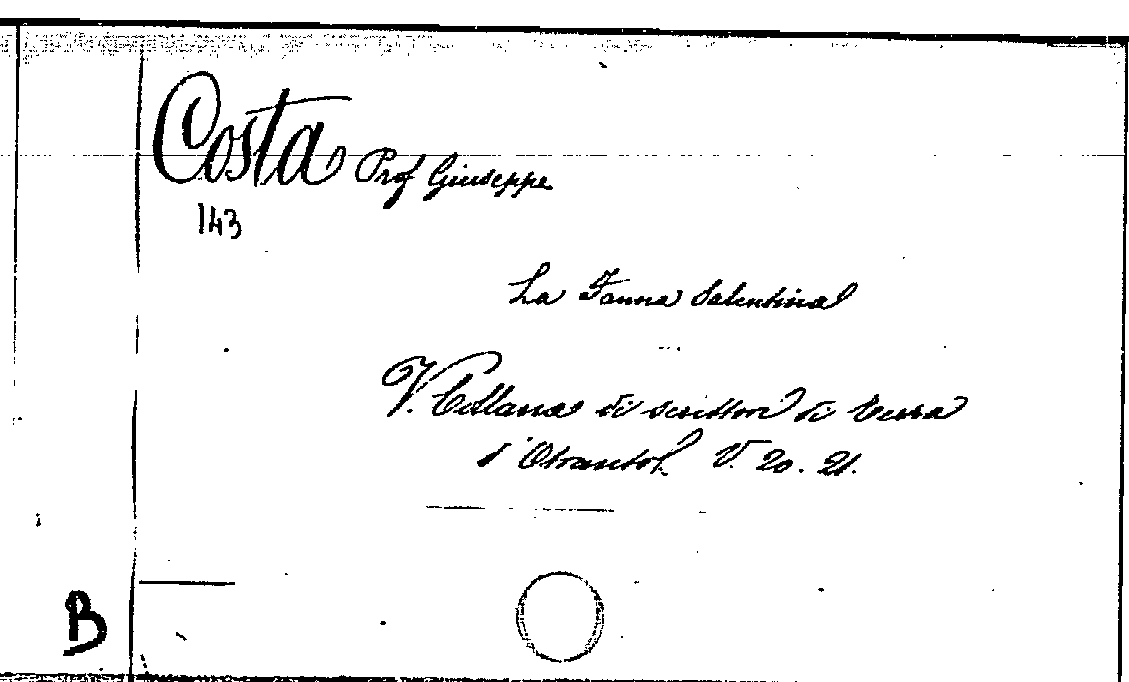 Costa Prof Giuseppe
143
La Fauna Salentina
V. Collana di scrittori di terra
d'Otranto V. 20. 21.
B